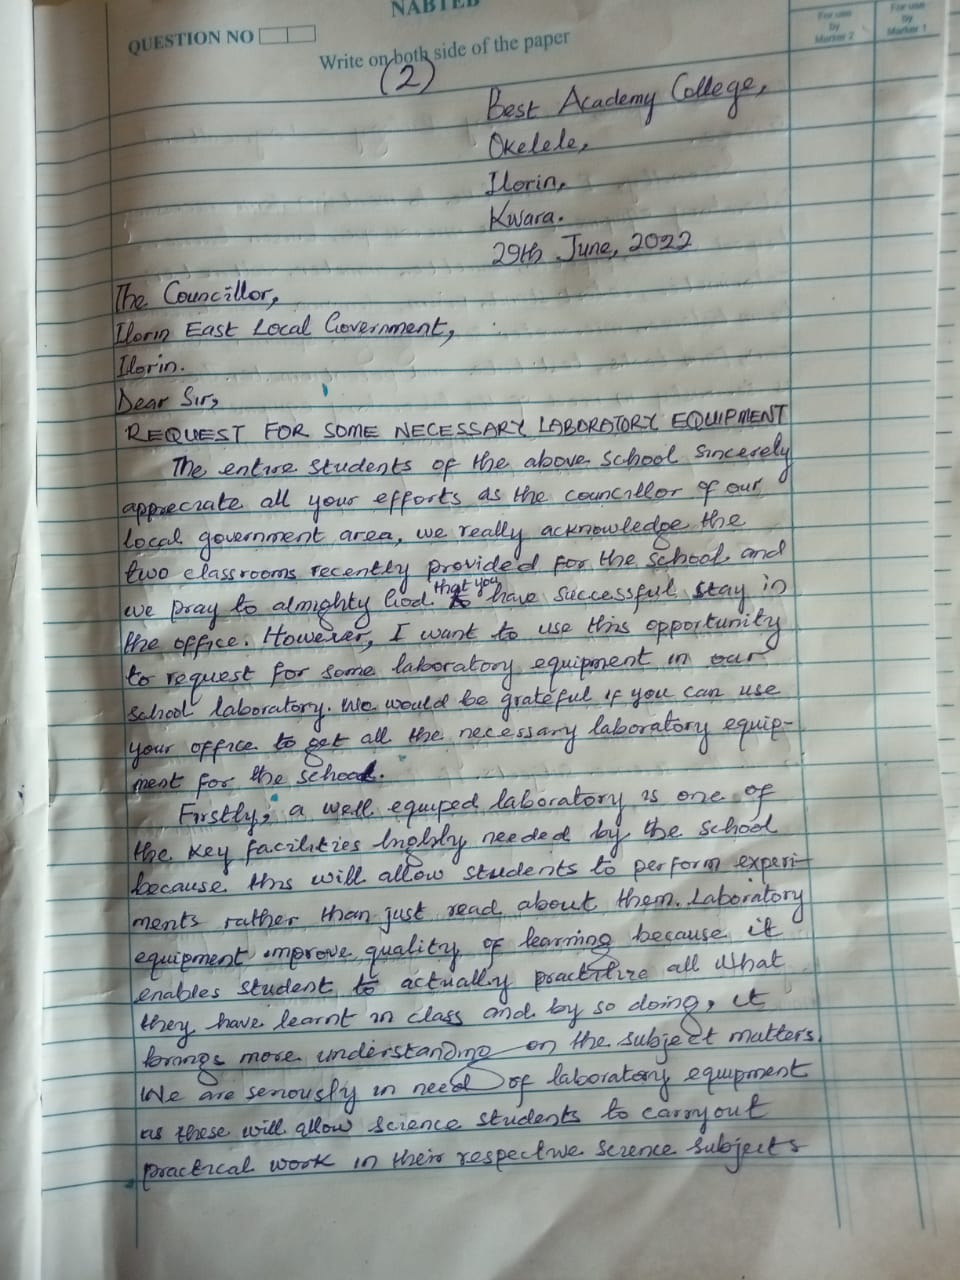 NABTEB
QUESTION NO
Write on both side of the paper
For use
by
Marker 2
For use
by
Marker 1
(2)
Best Academy College,
Okelele,
Ilorin,
Kwara.
29th June, 2022
The Councillor,
Ilorin East Local Government,
Ilorin.
Dear Sir,
REQUEST FOR SOME NECESSARY LABORATORY EQUIPMENT
The entire students of the above school sincerely
appreciate all your efforts as the councillor of our
local government area, we really acknowledge the
two classrooms recently provided for the school and
we pray to almighty God that you have successful stay in
the office. However, I want to use this opportunity
to request for some laboratory equipment in our
school laboratory. We would be grateful if you can use
your office to get all the necessary laboratory equip-
ment for the school.
Firstly, a well equiped laboratory is one of
the key facilities highly needed by the school
because this will allow students to perform experi-
ments rather than just read about them. Laboratory
equipment improve quality of learning because it
enables student to actually practilize all what
they have learnt in class and by so doing, it
brings more understanding on the subject matters.
We are seriously in need of laboratory equipment
as these will allow science students to carryout
practical work in their respective science subjects